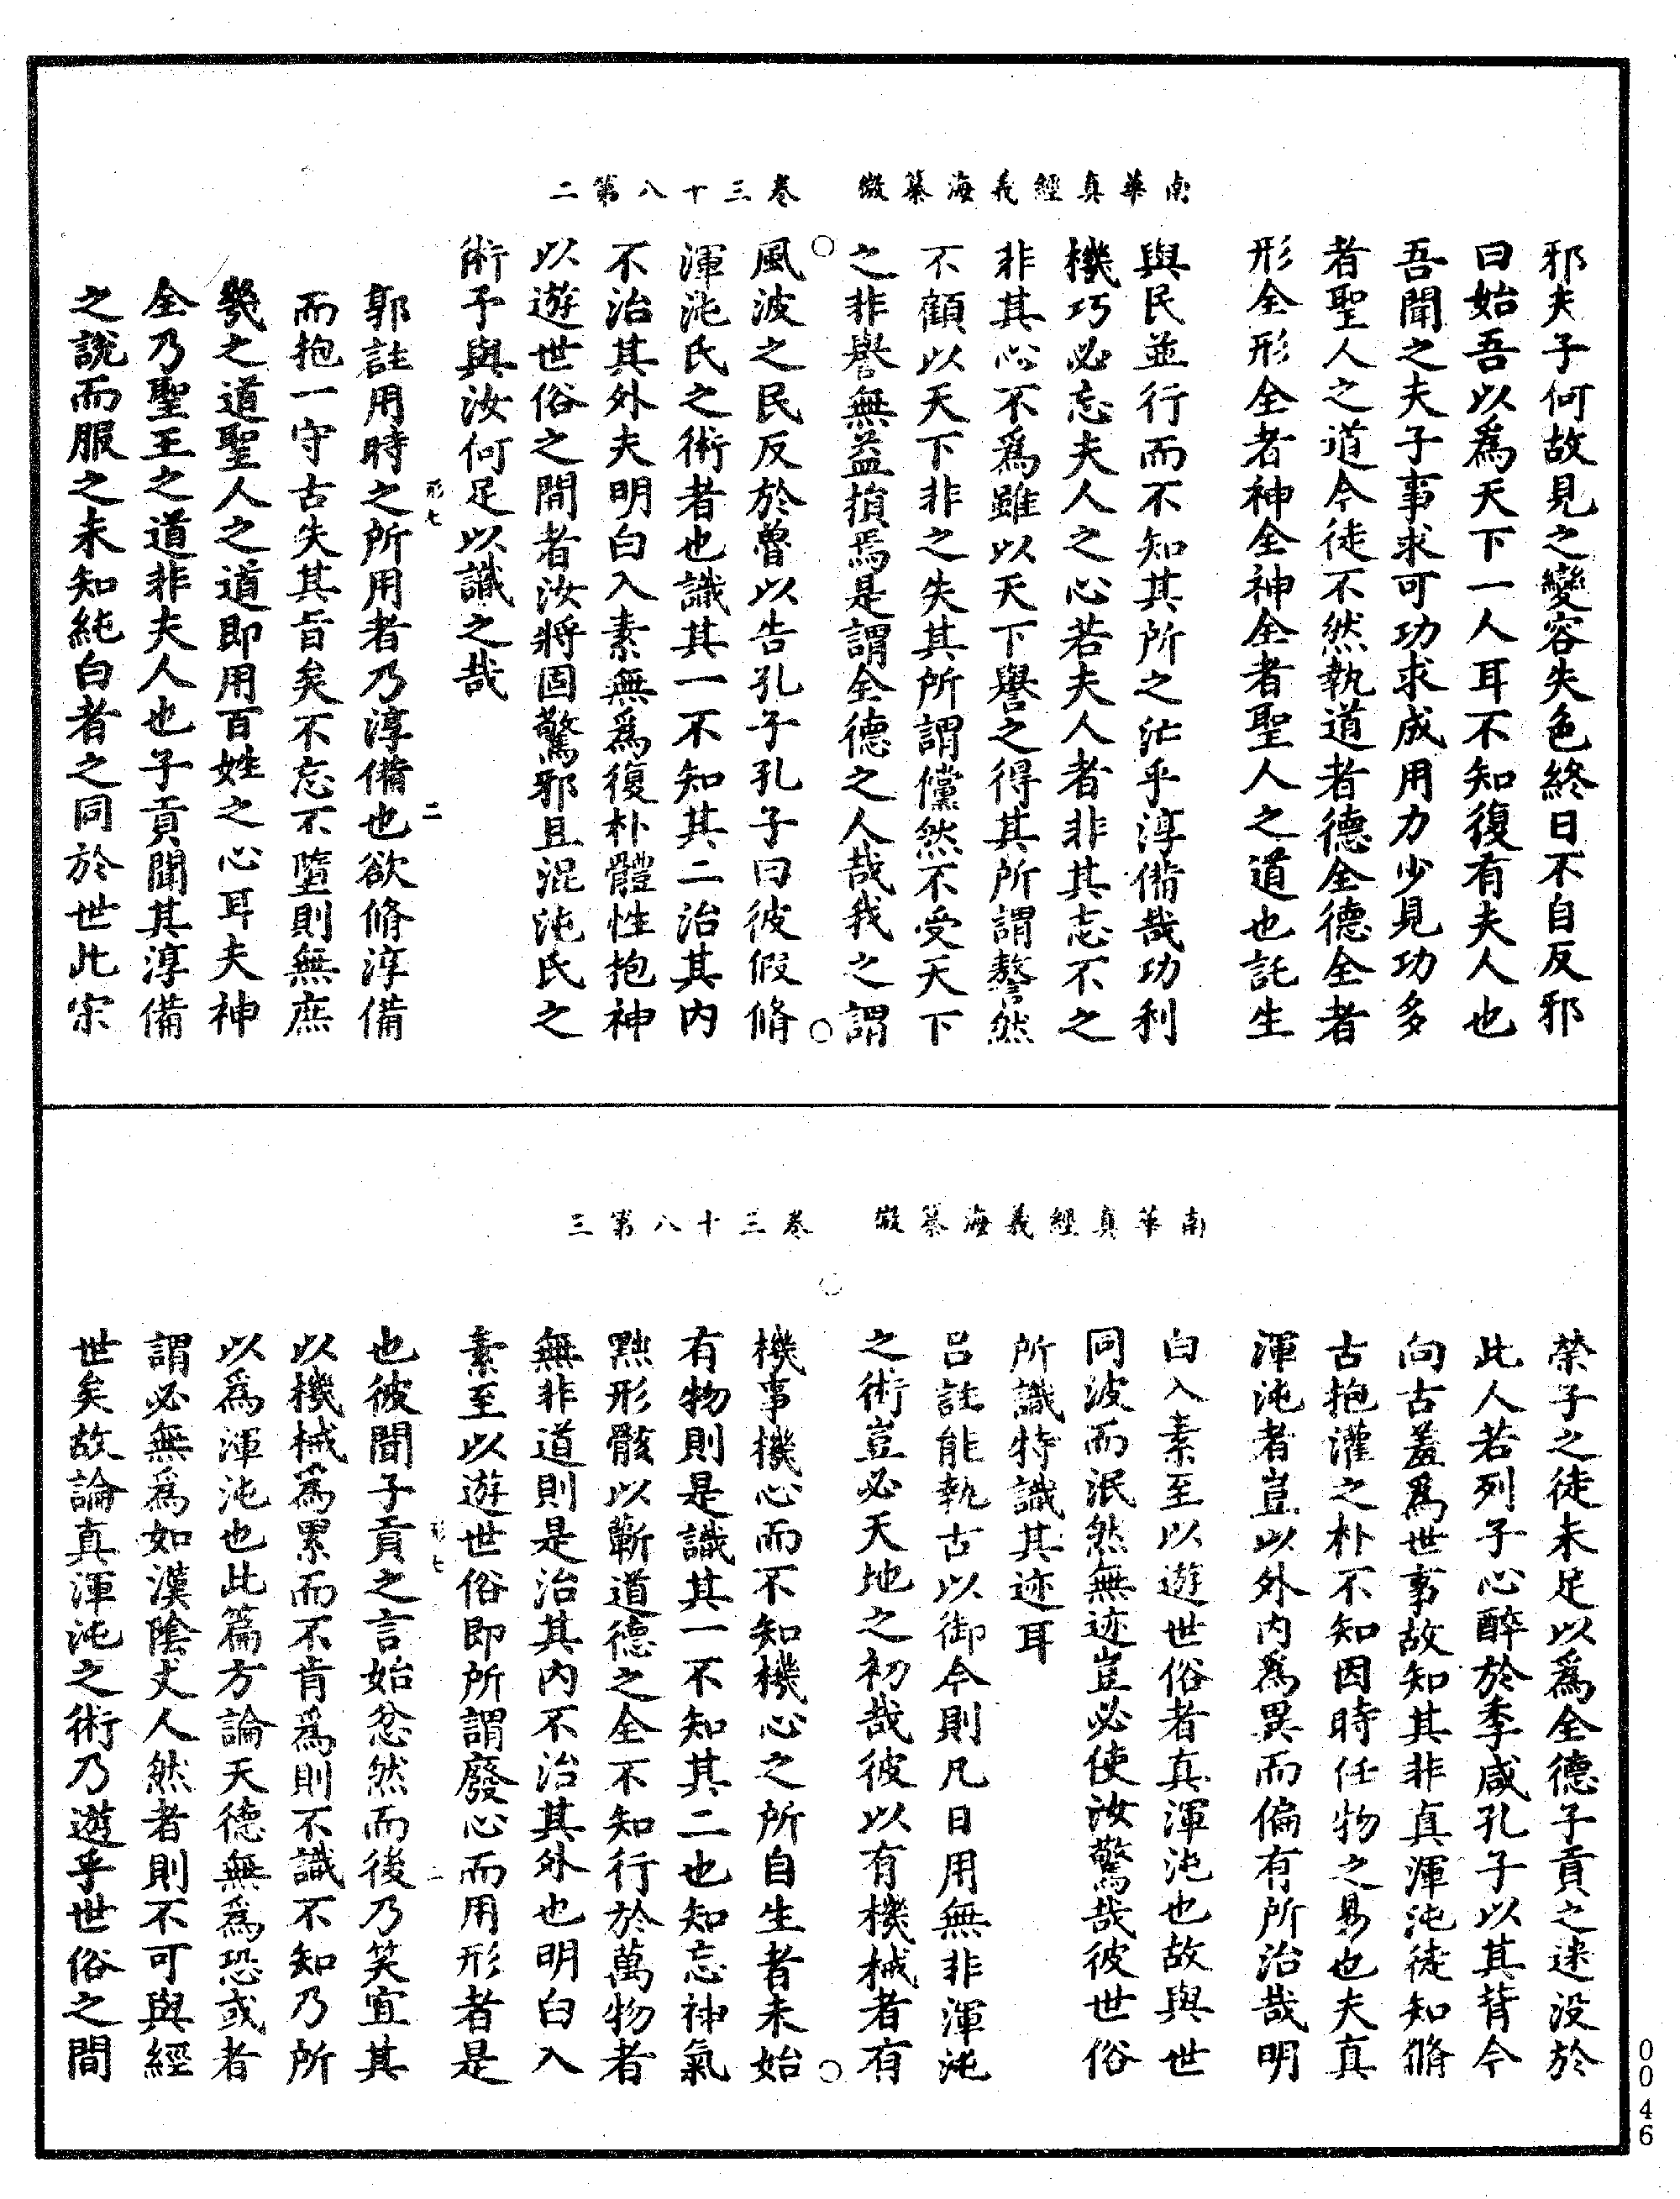 南華真經義海纂微　卷三十八第二
邪夫子何故見之變容失色終日不自反邪
曰始吾以為天下一人耳不知復有夫人也
吾聞之夫子事求可功求成用力少見功多
者聖人之道今徒不然執道者德全德全者
形全形全者神全神全者聖人之道也託生
與民並行而不知其所之茫乎淳備哉功利
機巧必忘夫人之心若夫人者非其志不之
非其心不為雖以天下譽之得其所謂謷然
不顧以天下非之失其所謂儻然不受天下
之非譽無益損焉是謂全德之人哉我之謂
風波之民反於魯以告孔子孔子曰彼假脩
渾沌氏之術者也識其一不知其二治其內
不治其外夫明白入素無為復朴體性抱神
以遊世俗之間者汝將固驚邪且混沌氏之
術予與汝何足以識之哉
形七　二
郭註用時之所用者乃淳備也欲脩淳備
而抱一守古失其旨矣不忘不墮則無庶
幾之道聖人之道即用百姓之心耳夫神
全乃聖王之道非夫人也子貢聞其淳備
之說而服之未知純白者之同於世此宋
南華真經義海纂微　卷三十八第三
榮子之徒未足以為全德子貢之迷没於
此人若列子心醉於季咸孔子以其背今
向古羞為世事故知其非真渾沌徒知脩
古抱灌之朴不知因時任物之易也夫真
渾沌者豈以外內為異而偏有所治哉明
白入素至以遊世俗者真渾沌也故與世
同波而泯然無迹豈必使汝驚哉彼世俗
所識特識其迹耳
呂註能執古以御今則凡日用無非渾沌
之術豈必天地之初哉彼以有機械者有
機事機心而不知機心之所自生者未始
有物則是識其一不知其二也知忘神氣
黜形骸以蘄道德之全不知行於萬物者
無非道則是治其內不治其外也明白入
素至以遊世俗即所謂廢心而用形者是
形七　二
也彼聞子貢之言始忿然而後乃笑宜其
以機械為累而不肯為則不識不知乃所
以為渾沌也此篇方論天德無為恐或者
謂必無為如漢陰丈人然者則不可與經
世矣故論真渾沌之術乃遊乎世俗之間
0046